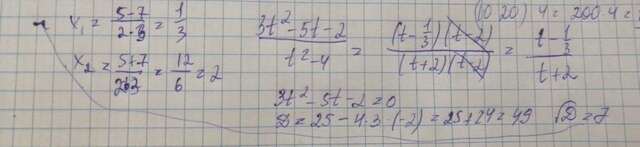 x₁ = (5-7)/(2·3) = 1/3
x₂ = (5+7)/(2·3) = 12/6 = 2
(3t² - 5t - 2)/(t² - 4) = ((t - 1/3)(t - 2))/((t + 2)(t - 2)) = (t - 1/3)/(t + 2)
3t² - 5t - 2 = 0
D = 25 - 4·3·(-2) = 25 + 24 = 49 √D = 7